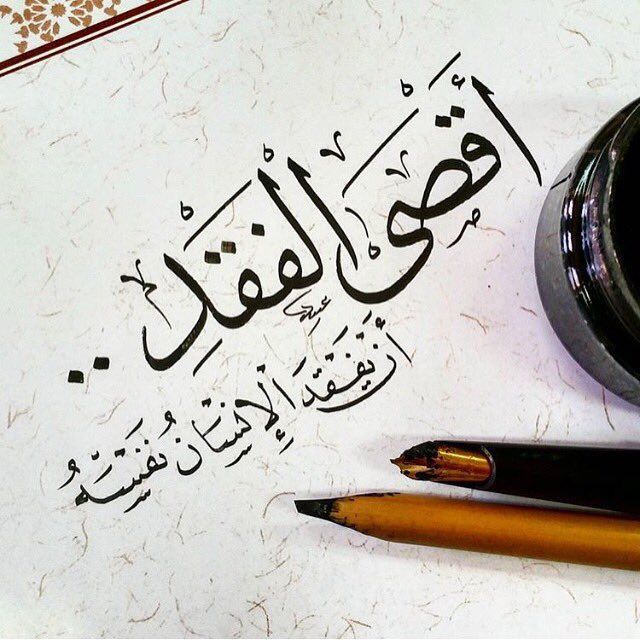 أقصى الفقدِ ..
أن يَفقدَ الإنسَان نفسَهُ